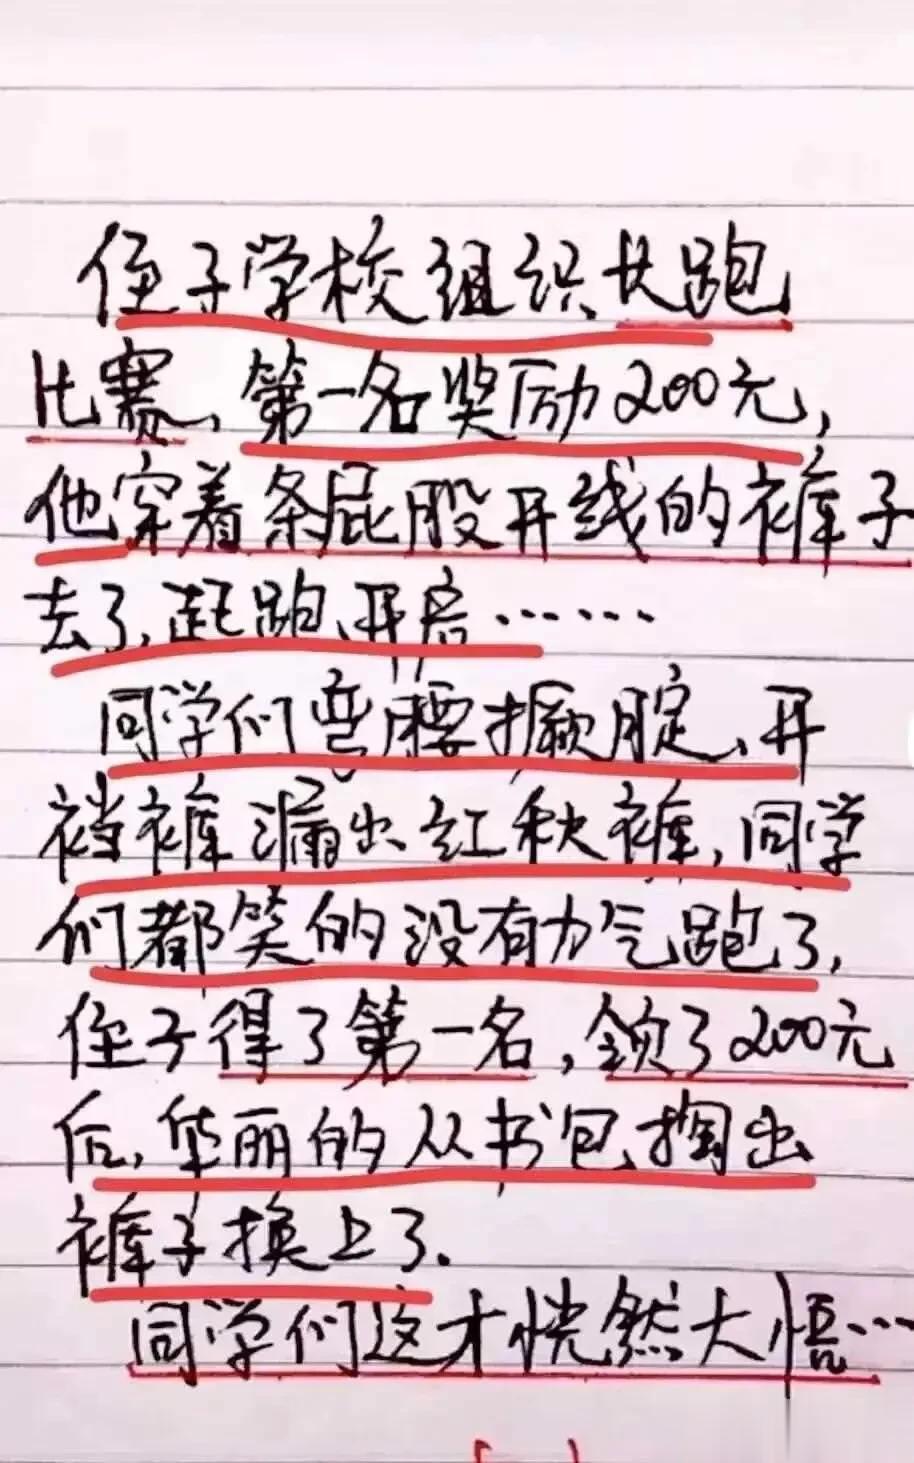 侄子学校组织长跑
比赛,第一名奖励200元,
他穿着条屁股开线的裤子
去了,起跑开启……
同学们弯腰撅腚,开
裆裤漏出红秋裤,同学
们都笑的没有力气跑了,
侄子得了第一名,领了200元
后,华丽的从书包掏出
裤子换上了.
同学们这才恍然大悟…